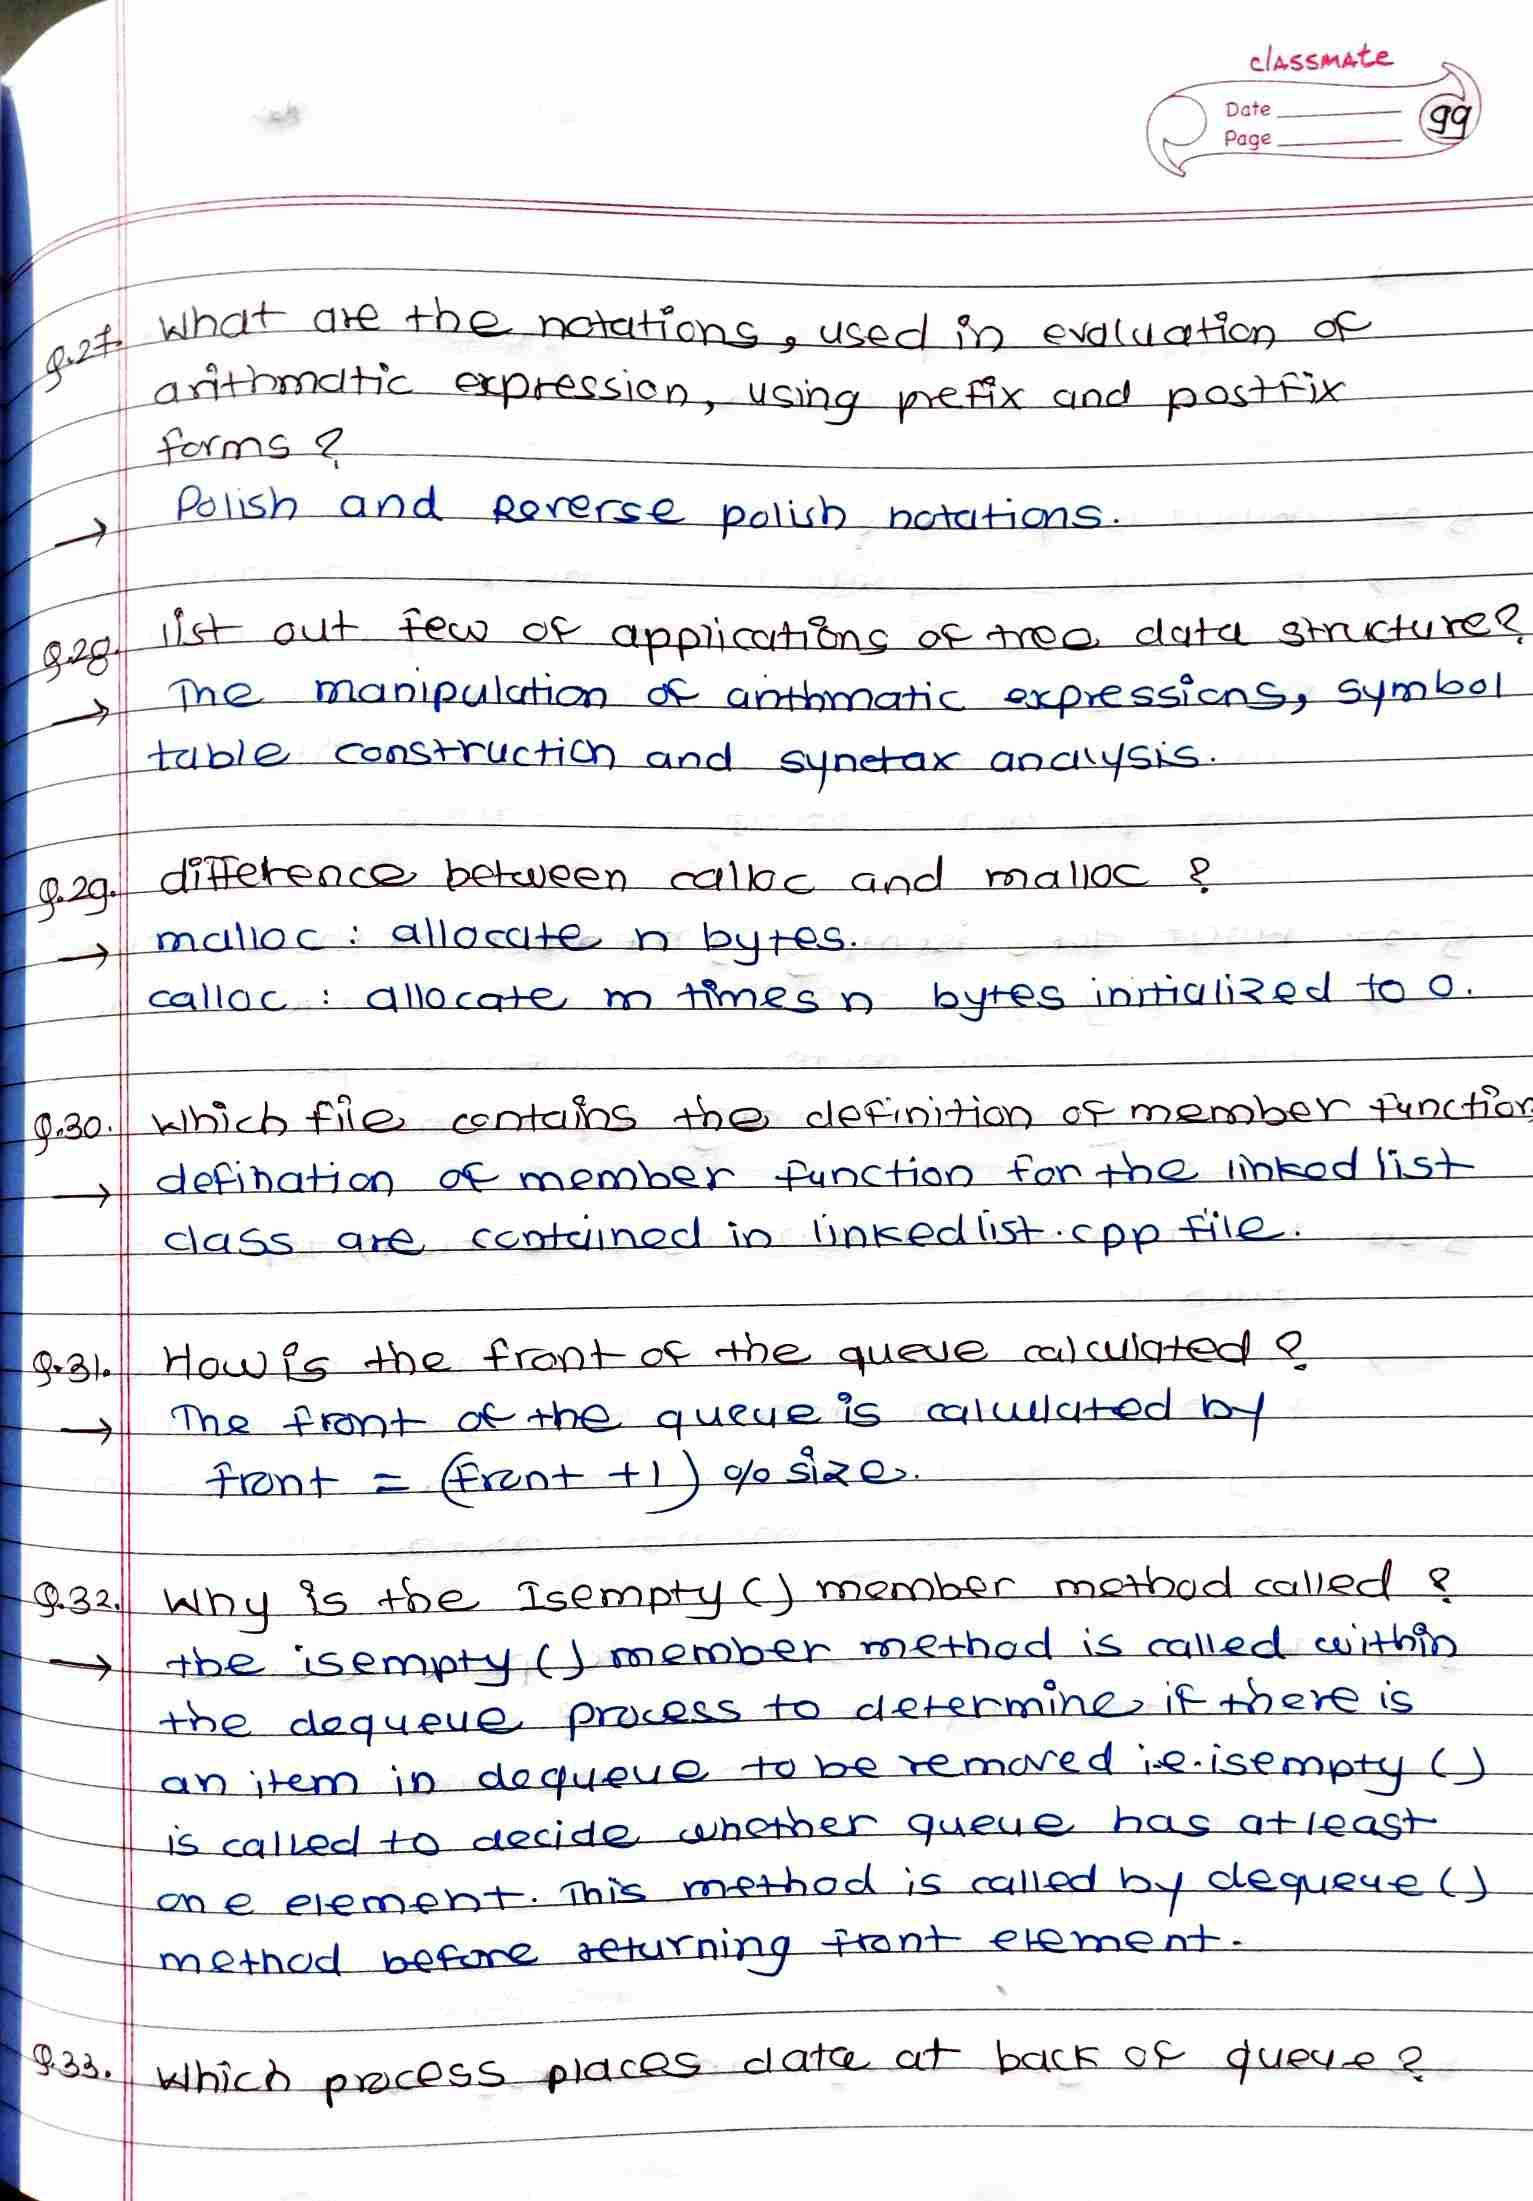 classmate
Date
Page
99
Q.27. What are the notations, used in evaluation of
arithmatic expression, using prefix and postfix
forms?
→ Polish and Reverse polish notations.
Q.28. list out few of applications of tree data structure?
→ The manipulation of arithmatic expressions, symbol
table construction and synetax analysis.
Q.29. difference between calloc and malloc ?
→ malloc : allocate n bytes.
calloc : allocate m times n bytes initialized to 0.
Q.30. Which file contains the definition of member function
→ defination of member function for the linked list
class are contained in linkedlist.cpp file.
Q.31. How is the front of the queue calculated ?
→ The front of the queue is calculated by
front = (front +1) % size.
Q.32. Why is the Isempty () member method called ?
→ the isempty () member method is called within
the dequeue process to determine if there is
an item in dequeue to be removed i.e. isempty ()
is called to decide whether queue has atleast
one element. This method is called by dequeue ()
method before returning front element.
Q.33. Which process places data at back of queue ?